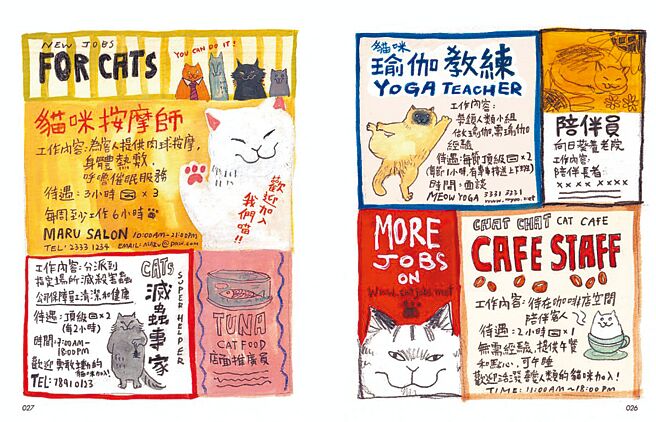 NEW JOBS
FOR CATS
YOU CAN DO IT!
貓咪按摩師
工作內容:為客人提供肉球按摩,
身體熱敷,
呼嚕催眠服務
待遇:3小時 × 3
每周至少工作6小時
MARU SALON 10:00AM-21:00PM
TEL:2333 1234 EMAIL:MARU@PAW.COM
歡迎加入
我們喵!!
工作內容:分派到
指定場所滅殺害蟲
公研保障員工清潔和健康
待遇:頂級 ×2
(每2小時)
時間:9:00AM-
18:00PM
歡迎勇敢好動的
貓咪加入!
TEL:78910133
CATS
滅蟲專家
SUPER HELPER
TUNA
CAT FOOD
店面推廣員
027
貓咪
瑜伽教練
YOGA TEACHER
工作內容:
帶領人類小組
做瑜伽,需瑜伽
經驗
待遇:海質頂級 ×2
時間:面談
MEOW YOGA 3331 5231
www.myoo.net
陪伴員
向日葵養老院
工作內容:
陪伴長者
×××× ××××
MORE
JOBS
ON
www.catjobs.net
CHAT CHAT CAT CAFE
CAFE STAFF
工作內容:待在咖啡店空間
陪伴客人
待遇:2小時 ×1
無需經驗,提供午餐
和點心,可午睡
歡迎活潑喜愛人類的貓咪加入!
TIME:11:00AM~18:00PM
026